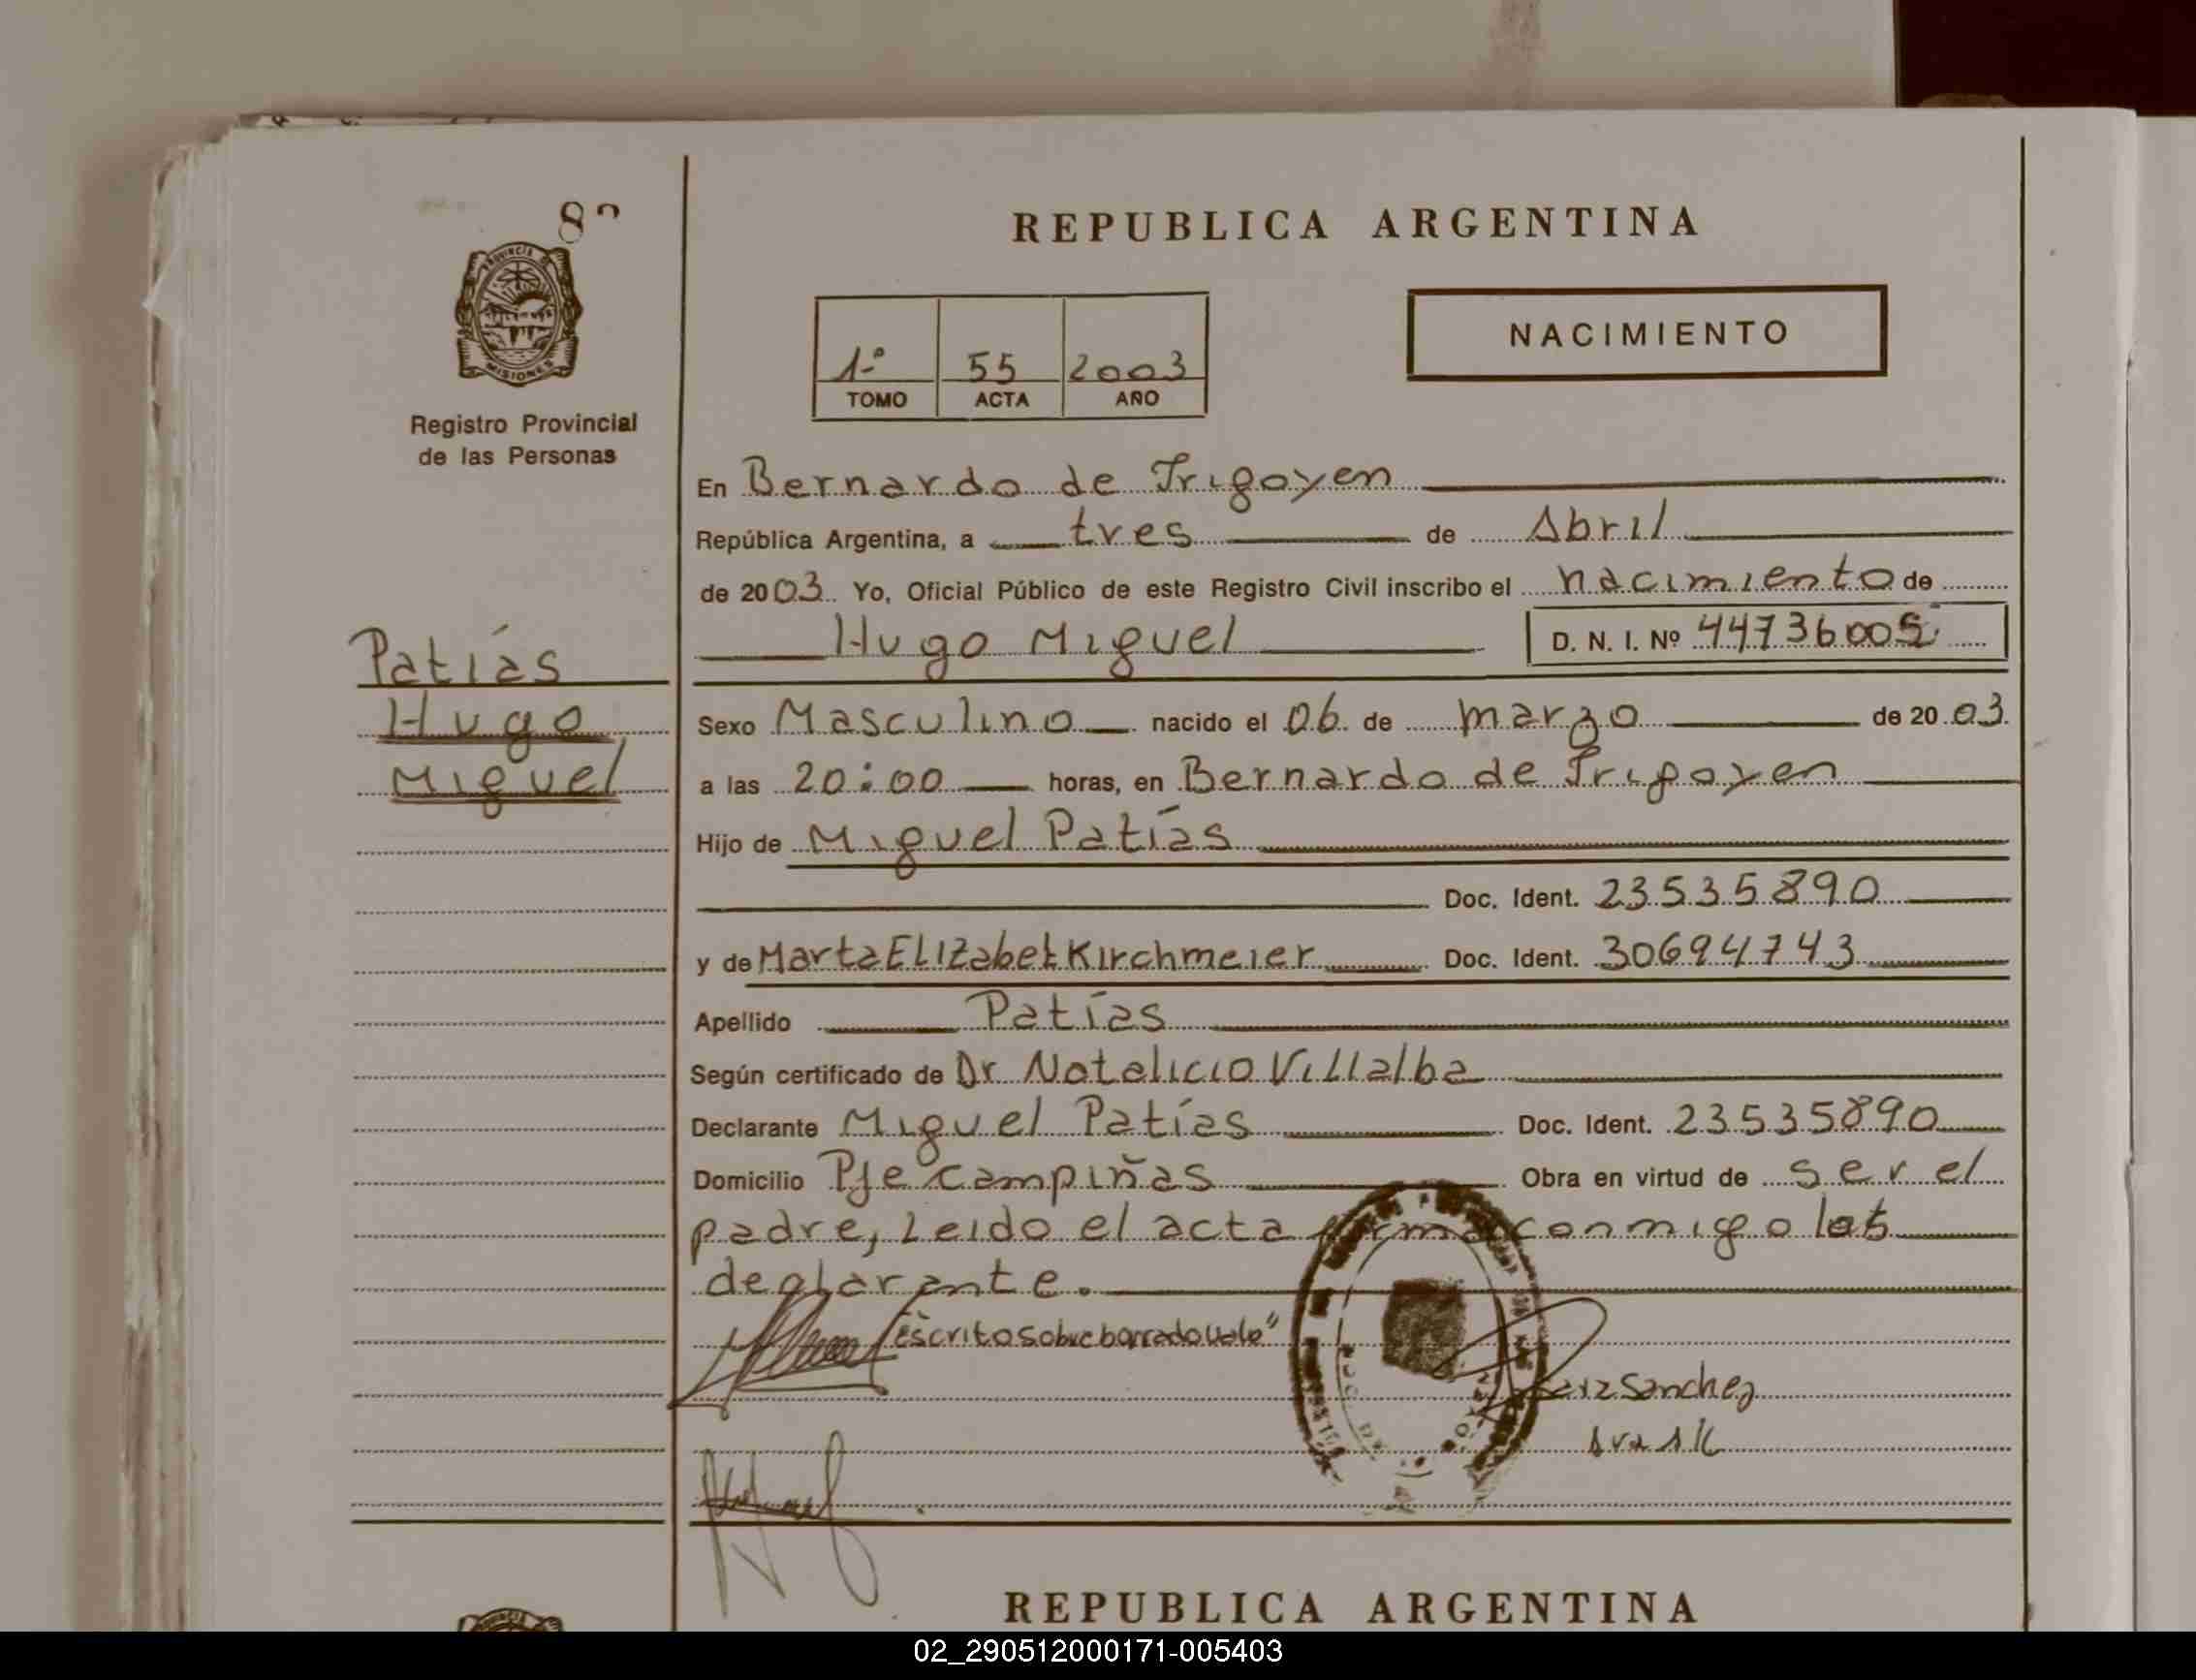 8
PROVINCIA DE
MISIONES
Registro Provincial
de las Personas
Patías
Hugo
Miguel
REPUBLICA ARGENTINA
1º 55 2003
TOMO ACTA AÑO
NACIMIENTO
En Bernardo de Irigoyen
República Argentina, a tres de Abril
de 2003 Yo, Oficial Público de este Registro Civil inscribo el nacimiento de
Hugo Miguel D. N. I. Nº 44736005
Sexo Masculino nacido el 06 de marzo de 2003
a las 20:00 horas, en Bernardo de Irigoyen
Hijo de Miguel Patías
Doc. Ident. 23535890
y de Marta Elizabet Kirchmeier Doc. Ident. 30694743
Apellido Patías
Según certificado de Dr Natalicio Villalba
Declarante Miguel Patías Doc. Ident. 23535890
Domicilio Pje Campiñas Obra en virtud de ser el
padre, Leido el acta firma conmigo
declarante.
"Escrito sobre borrado vale"
Sanchez
REPUBLICA ARGENTINA
02_290512000171-005403